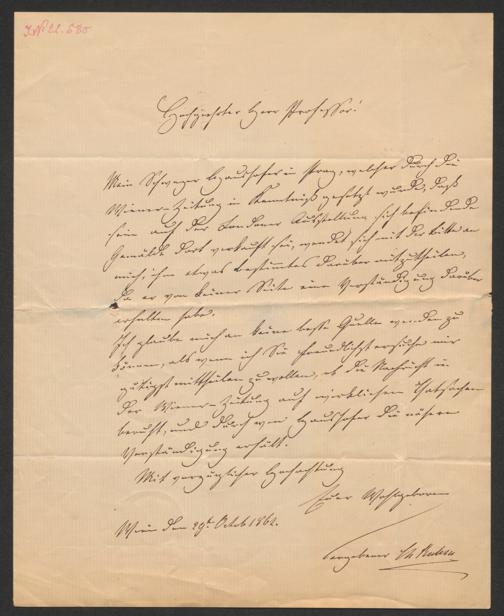 I.N. 22.585
Hochgeehrter Herr Professor!
Mein Schwager Haushofer in Prag, welcher durch die
Wiener-Zeitung in Kenntniß gesetzt wurde, daß
sein auf der Londoner Ausstellung sich befindende
Gemälde dort verkauft sei, wendet sich mit der Bitte an
mich, ihm etwas Bestimmtes darüber mitzutheilen,
da er von keiner Seite eine Verständigung darüber
erhalten habe.
Ich glaube mich an keine beste Quelle wenden zu
können, als wenn ich Sie freundlichst ersuche mir
gütigst mittheilen zu wollen, ob die Nachricht in
der Wiener-Zeitung auf wirklichen Thatsachen
beruht, und durch wen Haushofer die nähere
Verständigung erhält.
Mit vorzüglicher Hochachtung
Euer Wohlgeboren
Wien den 29t. Octob 1862.
ergebener Ch Ruben